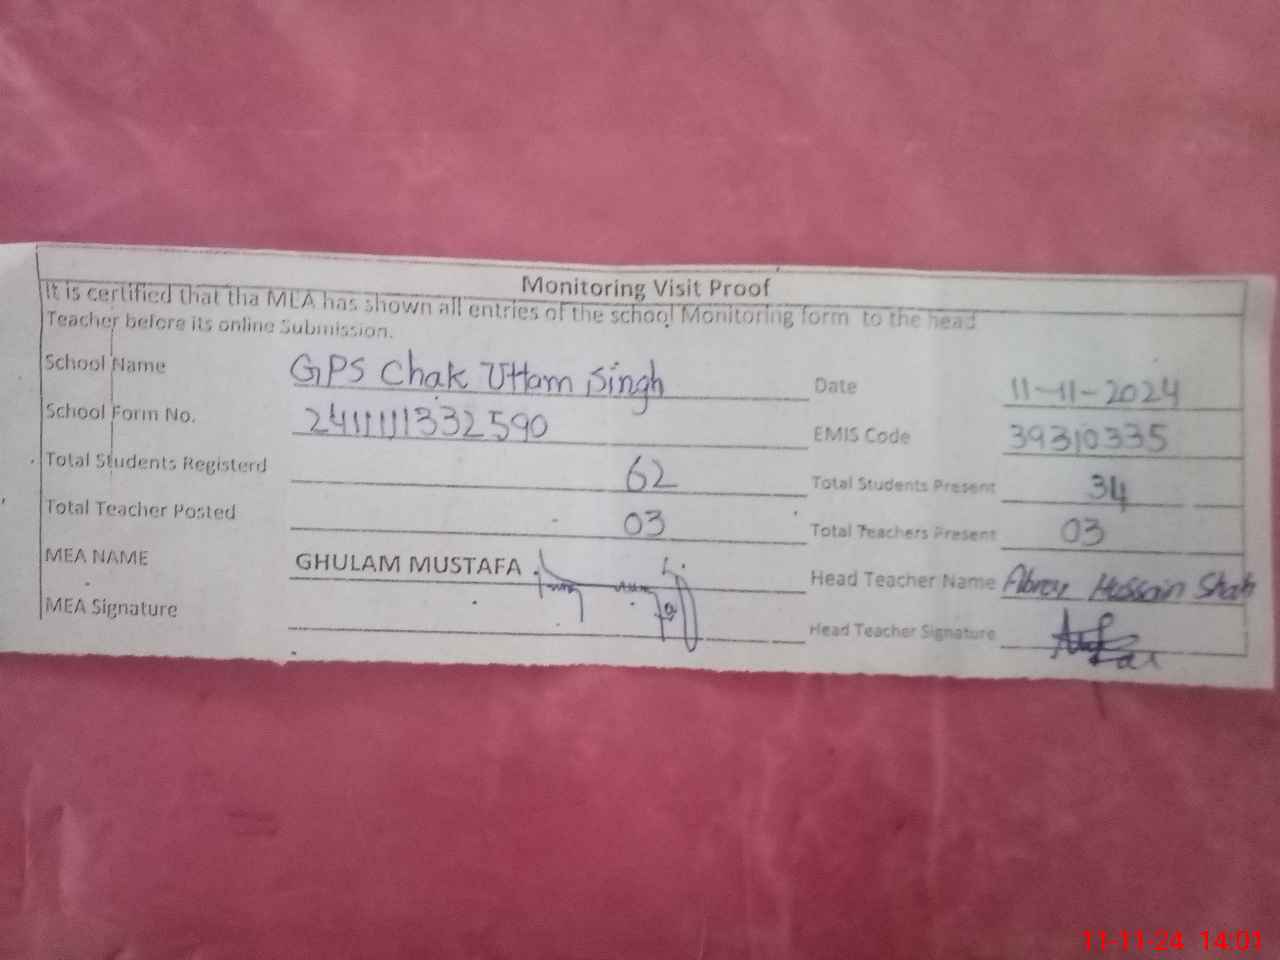 Monitoring Visit Proof
It is certified that tha MEA has shown all entries of the school Monitoring form to the head
Teacher before its online Submission.
School Name GPS Chak Uttam Singh Date 11-11-2024
School Form No. EMIS Code 39310335
Total Students Registerd 62 Total Students Present 34
Total Teacher Posted 03 Total Teachers Present 03
MEA NAME GHULAM MUSTAFA Head Teacher Name Hussain Shah
MEA Signature Head Teacher Signature
11-11-24 14:01